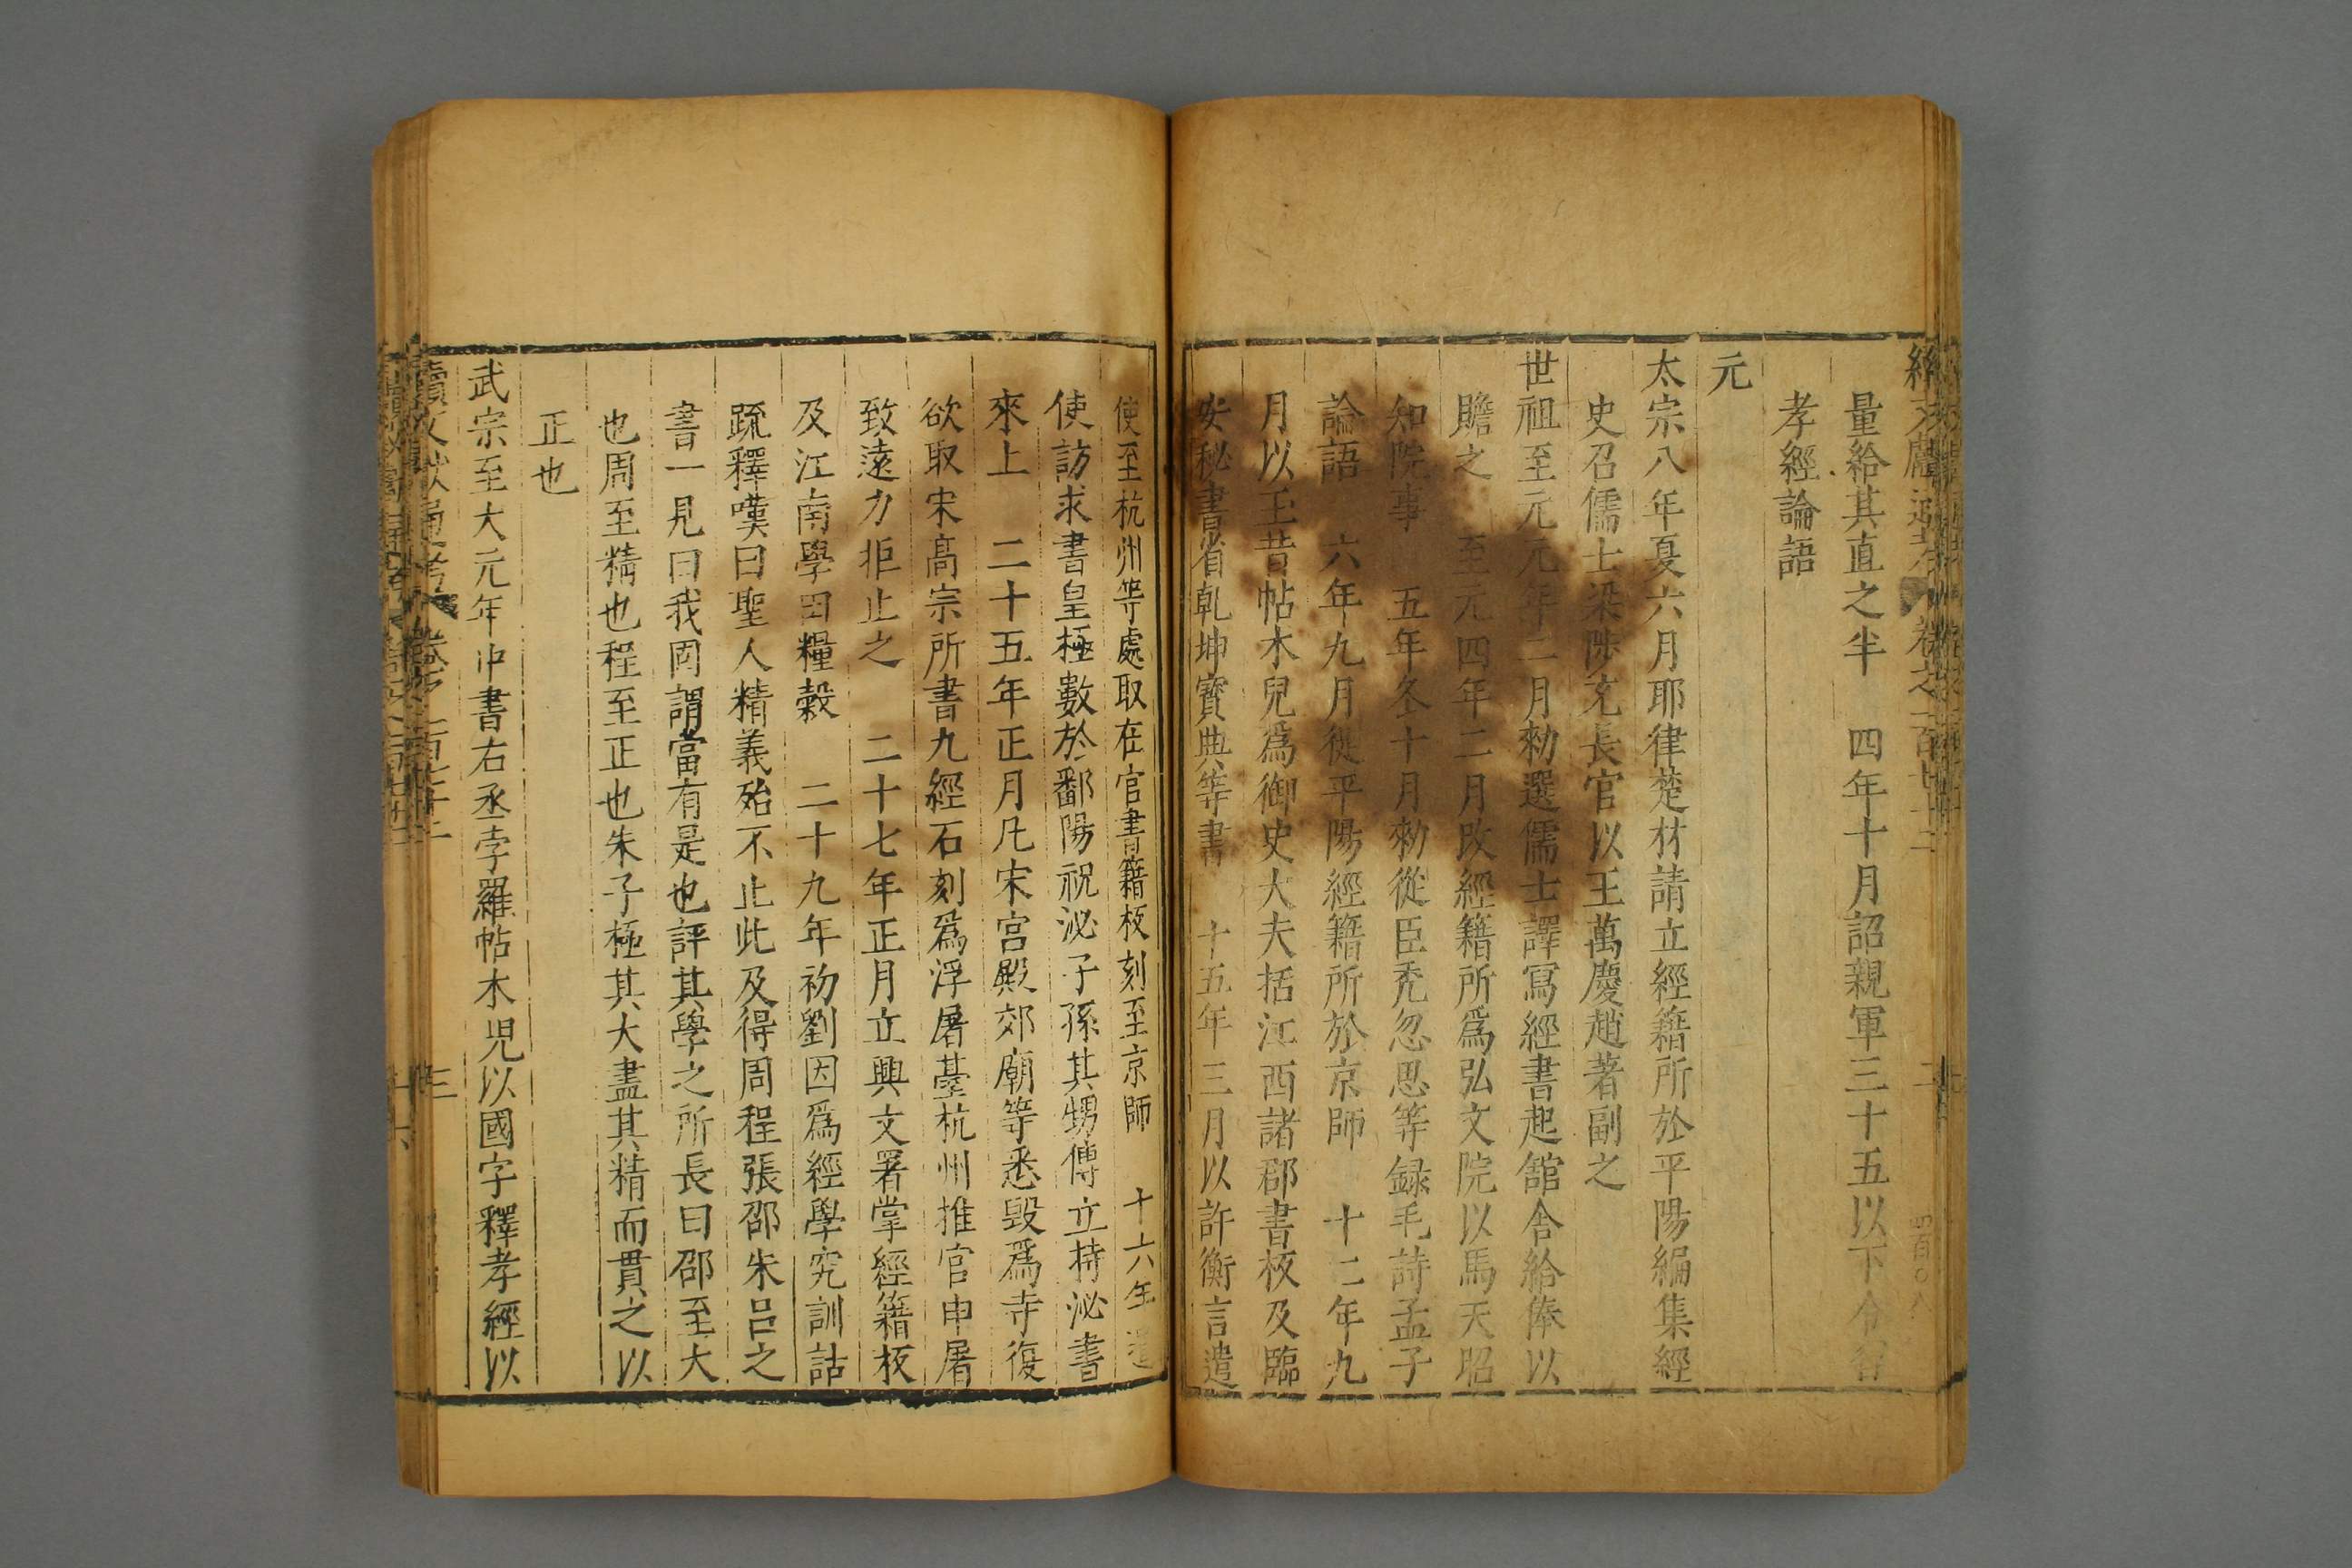 量給其直之半　四年十月詔親軍三十五以下令習
孝經論語
元
太宗八年夏六月耶律楚材請立經籍所於平陽編集經
史召儒士梁陟充長官以王萬慶趙著副之
世祖至元元年二月勑選儒士譯冩經書起舘舎給俸以
贍之　至元四年二月改經籍所爲弘文院以馬天昭
知院事　五年冬十月勑從臣禿忽思等録毛詩孟子
論語　六年九月徙平陽經籍所於京師　十二年九
月以玉昔帖木兒爲御史大夫括江西諸郡書板及臨
安秘書省乾坤寳典等書　十五年三月以許衡言遣
使至杭州等處取在官書籍板刻至京師　十六年遣
使訪求書皇極數於鄱陽祝泌子孫其甥傅立持泌書
來上　二十五年正月凡宋宫殿郊廟等悉毁爲寺復
欲取宋髙宗所書九經石刻爲浮屠基杭州推官申屠
致遠力拒止之　二十七年正月立興文署掌經籍板
及江南學田糧穀　二十九年初劉因爲經學究訓詁
疏釋嘆曰聖人精義殆不止此及得周程張邵朱吕之
書一見曰我固謂當有是也評其學之所長曰邵至大
也周至精也程至正也朱子極其大盡其精而貫之以
正也
武宗至大元年中書右丞孛羅帖木児以國字釋孝經以
續文獻通考 卷之一百七十二 三